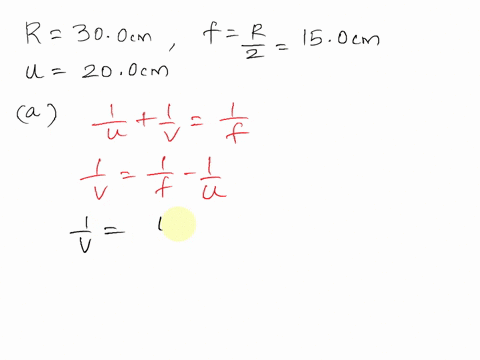 R = 30.0cm , f = R/2 = 15.0cm
u = 20.0cm
(a) 1/u + 1/v = 1/f
1/v = 1/f - 1/u
1/v =